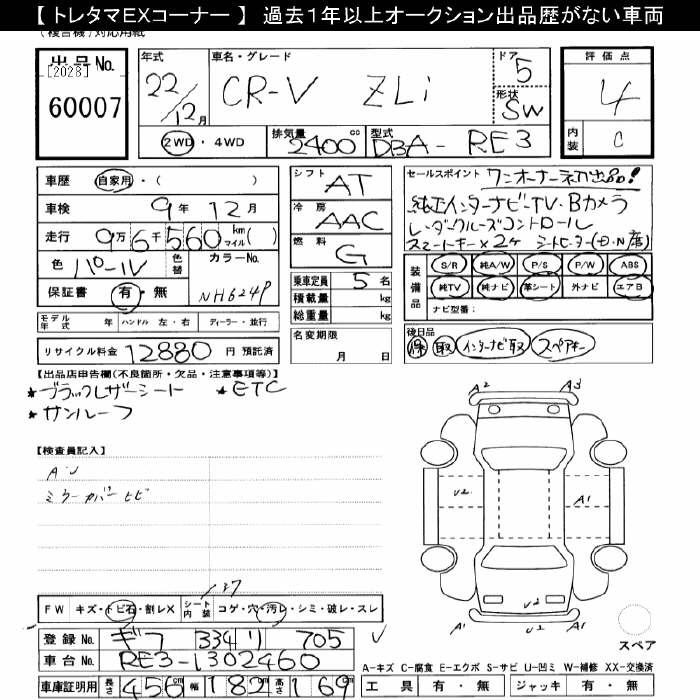 【 トレタマEXコーナー 】 過去1年以上オークション出品歴がない車両
出品No.
[2028]
60007
年式
22/12月
車名・グレード
CR-V ZLi
ドア
5
形状
SW
2WD・4WD
排気量
2400 cc
型式
DBA- RE3
評価点
4
内装
C
車歴 自家用・( )
車検 9年 12月
走行 9万6千560 km マイル( )
色 パール
色替
カラーNo.
NH624P
保証書 有・無
モデル年式 年 ハンドル 左・右 ディーラー・並行
リサイクル料金 12880 円 預託済
シフト AT
冷房 AAC
燃料 G
乗車定員 5名
積載量 kg
総重量 kg
名変期限
月 日
セールスポイント ワンオーナー初出品!
純正インターナビーTV・Bカメラ
レーダークルーズコントロール
スマートキー×2ケ シートヒーター(D.N席)
装備品
S/R 純A/W P/S P/W ABS
純TV 純ナビ 革シート 外ナビ エアB
ナビ型番:
後日品
保 取 インターナビ取 スペアキー
【出品店申告欄(不良箇所・欠品・注意事項等)】
★ブラックレザーシート ★ETC
★サンルーフ
【検査員記入】
A・U
ミラーカバーヒビ
A2 A3
U2 A1
U2
A1 U2 A1
スペア
FW キズ・トビ石・割レX
シート内装 コゲ・穴・汚レ・シミ・破レ・スレ
登録No. ギフ 334 リ 705
車台No. RE3-1302460
車庫証明用 長さ 456 幅 182 高さ 169 cm
A-キズ C-腐食 E-エクボ S-サビ U-凹ミ W-補修 XX-交換済
工具 有・無 ジャッキ 有・無